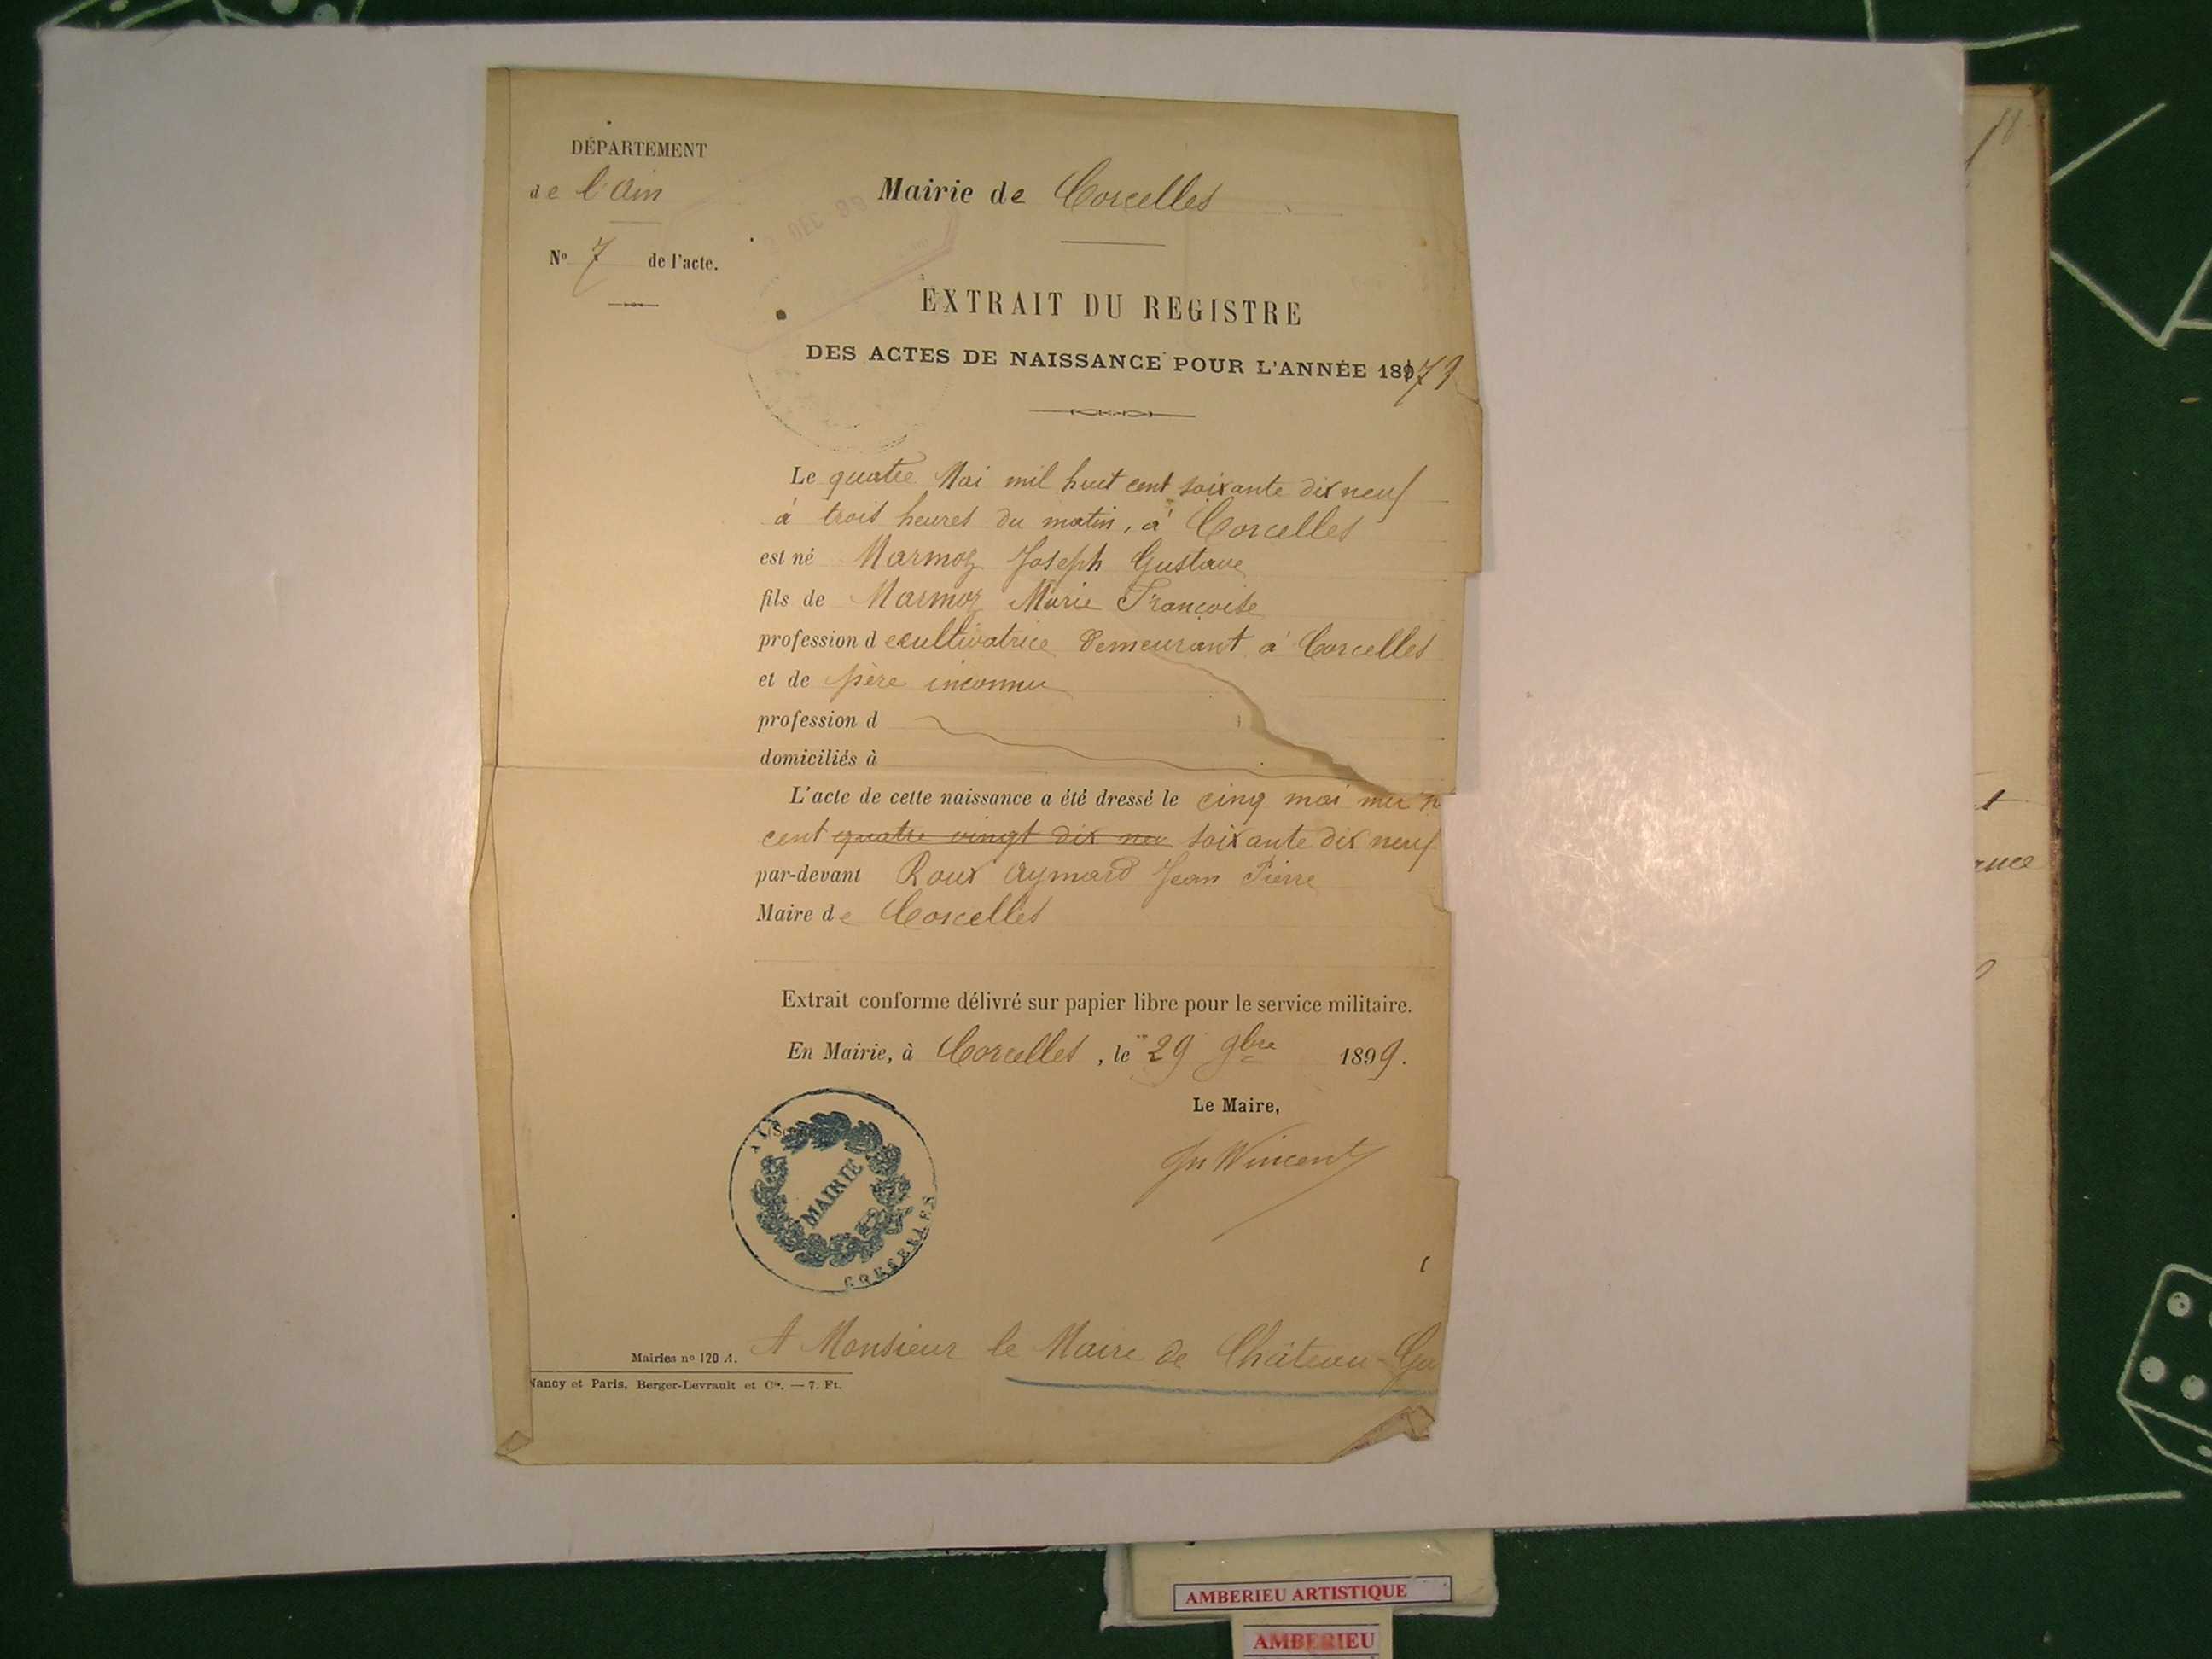 DÉPARTEMENT
de l'Ain
Nº 7 de l'acte.
Mairie de Corcelles
DEC 99
EXTRAIT DU REGISTRE
DES ACTES DE NAISSANCE POUR L'ANNÉE 18979
Le quatre Mai mil huit cent soixante dix neuf
à trois heures du matin, à Corcelles
est né Marmoz Joseph Gustave
fils de Marmoz Marie Françoise
profession de cultivatrice demeurant à Corcelles
et de père inconnu
profession d
domiciliés à
L'acte de cette naissance a été dressé le cinq mai
cent quatre vingt dix neu soixante dix neuf
par-devant Roux Aymard Jean Pierre
Maire de Corcelles
Extrait conforme délivré sur papier libre pour le service militaire.
En Mairie, à Corcelles, le 29 9bre 1899.
Le Maire,
Jn Vincent
AIN
MAIRIE
CORCELLES
A Monsieur le Maire de Château-Ga
Mairies nº 120 A.
Nancy et Paris, Berger-Levrault et Cie. — 7. Ft.
AMBERIEU ARTISTIQUE
AMBERIEU